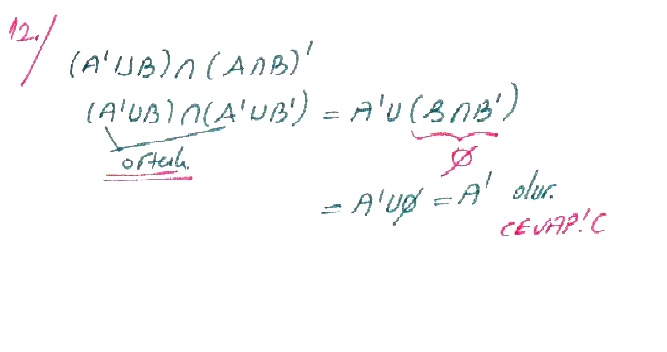 12./
(A'∪B)∩(A∩B)'
(A'∪B)∩(A'∪B') = A'∪(B∩B')
ortak. ∅
= A'∪∅ = A' olur.
CEVAP: C